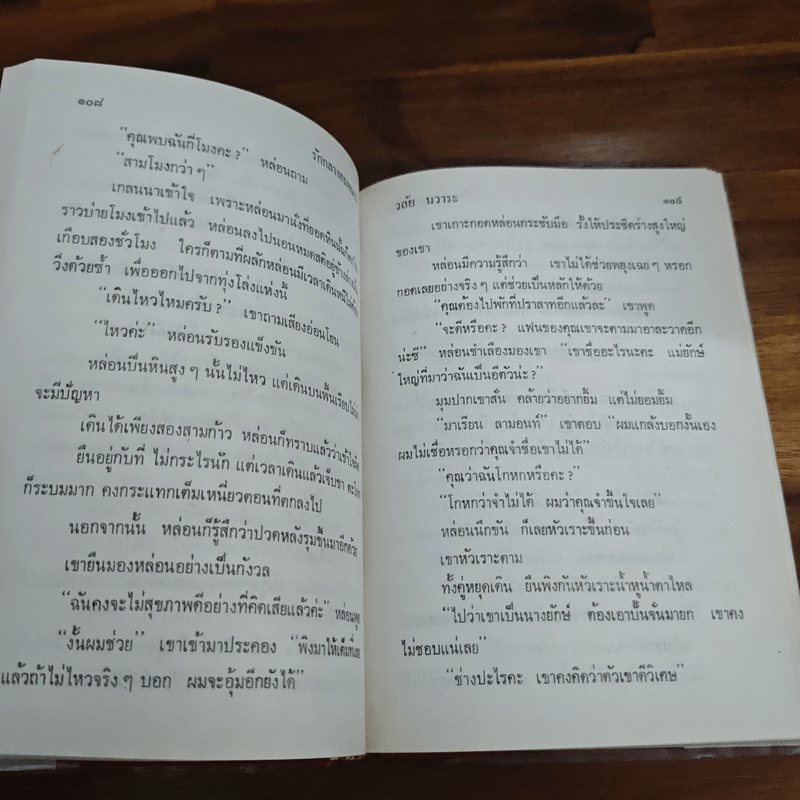 ๑๐๘
“คุณพบฉันกี่โมงคะ ?” หล่อนถาม
“สามโมงกว่า ๆ”
เกลนนาเข้าใจ เพราะหล่อนมานั่งที่ยอดหินนั้น
ราวบ่ายโมงเข้าไปแล้ว หล่อนลงไปนอนหมดสติอยู่ข้างล่าง
เกือบสองชั่วโมง ใครก็ตามที่ผลักหล่อนมีเวลาเดินหนีไม่ต้อง
วิ่งด้วยซ้ำ เพื่ออกไปจากทุ่งโล่งแห่งนี้
“เดินไหวไหมครับ ?” เขาถามเสียงอ่อนโยน
“ไหวค่ะ” หล่อนรับรองแข็งขัน
หล่อนปีนหินสูง ๆ นั้นไม่ไหว แต่เดินบนพื้นเรียบ
จะมีปัญหา
เดินได้เพียงสองสามก้าว หล่อนก็ทราบแล้วว่าเข้าใจผิด
ยืนอยู่กับที่ ไม่กระไรนัก แต่เวลาเดินแล้วเจ็บขา
ก็ระบมมาก คงกระแทกเต็มเหนี่ยวตอนที่ตกลงไป
นอกจากนั้น หล่อนก็รู้สึกว่าปวดหลังรุมขึ้นมาอีกด้วย
เขายืนมองหล่อนอย่างเป็นกังวล
“ฉันคงจะไม่สุขภาพดีอย่างที่คิดเสียแล้วค่ะ” หล่อนพูด
“งั้นผมช่วย” เขาเข้ามาประคอง “พิงมาให้เต็มที่เลย
แล้วถ้าไม่ไหวจริง ๆ บอก ผมจะอุ้มอีกยังได้”
วลัย นวาระ ๑๐๙
เขาเกาะกอดหล่อนกระชับมือ รั้งให้ประชิดร่างสูงใหญ่
ของเขา
หล่อนมีความรู้สึกว่า เขาไม่ได้ช่วยพยุงเฉย ๆ หรอก
กอดเลยอย่างจริง ๆ แต่ช่วยเป็นหลักให้ด้วย
“คุณต้องไปพักที่ปราสาทอีกแล้วละ” เขาพูด
“จะดีหรือคะ ? แฟนของคุณเขาจะตามมาอาละวาดอีก
น่ะซี” หล่อนชำเลืองมองเขา “เขาชื่ออะไรนะคะ แม่ยักษ์
ใหญ่ที่มาว่าฉันเป็นอีตัวน่ะ ?”
มุมปากเขาสั่น คล้ายว่าอยากยิ้ม แต่ไม่ยอมยิ้ม
“มาเรียน ลามอนท์” เขาตอบ “ผมแกล้งบอกงั้นเอง
ผมไม่เชื่อหรอกว่าคุณจำชื่อเขาไม่ได้”
“คุณว่าฉันโกหกหรือคะ ?”
“โกหกว่าจำไม่ได้ ผมว่าคุณจำขึ้นใจเลย”
หล่อนนึกขัน ก็เลยหัวเราะขึ้นก่อน
เขาหัวเราะตาม
ทั้งคู่หยุดเดิน ยืนพิงกันหัวเราะน้ำหูน้ำตาไหล
“ไปว่าเขาเป็นนางยักษ์ ต้องเอาปั้นจั่นมายก เขาคง
ไม่ชอบแน่เลย”
“ช่างปะไรคะ เขาคงคิดว่าตัวเขาดีวิเศษ”